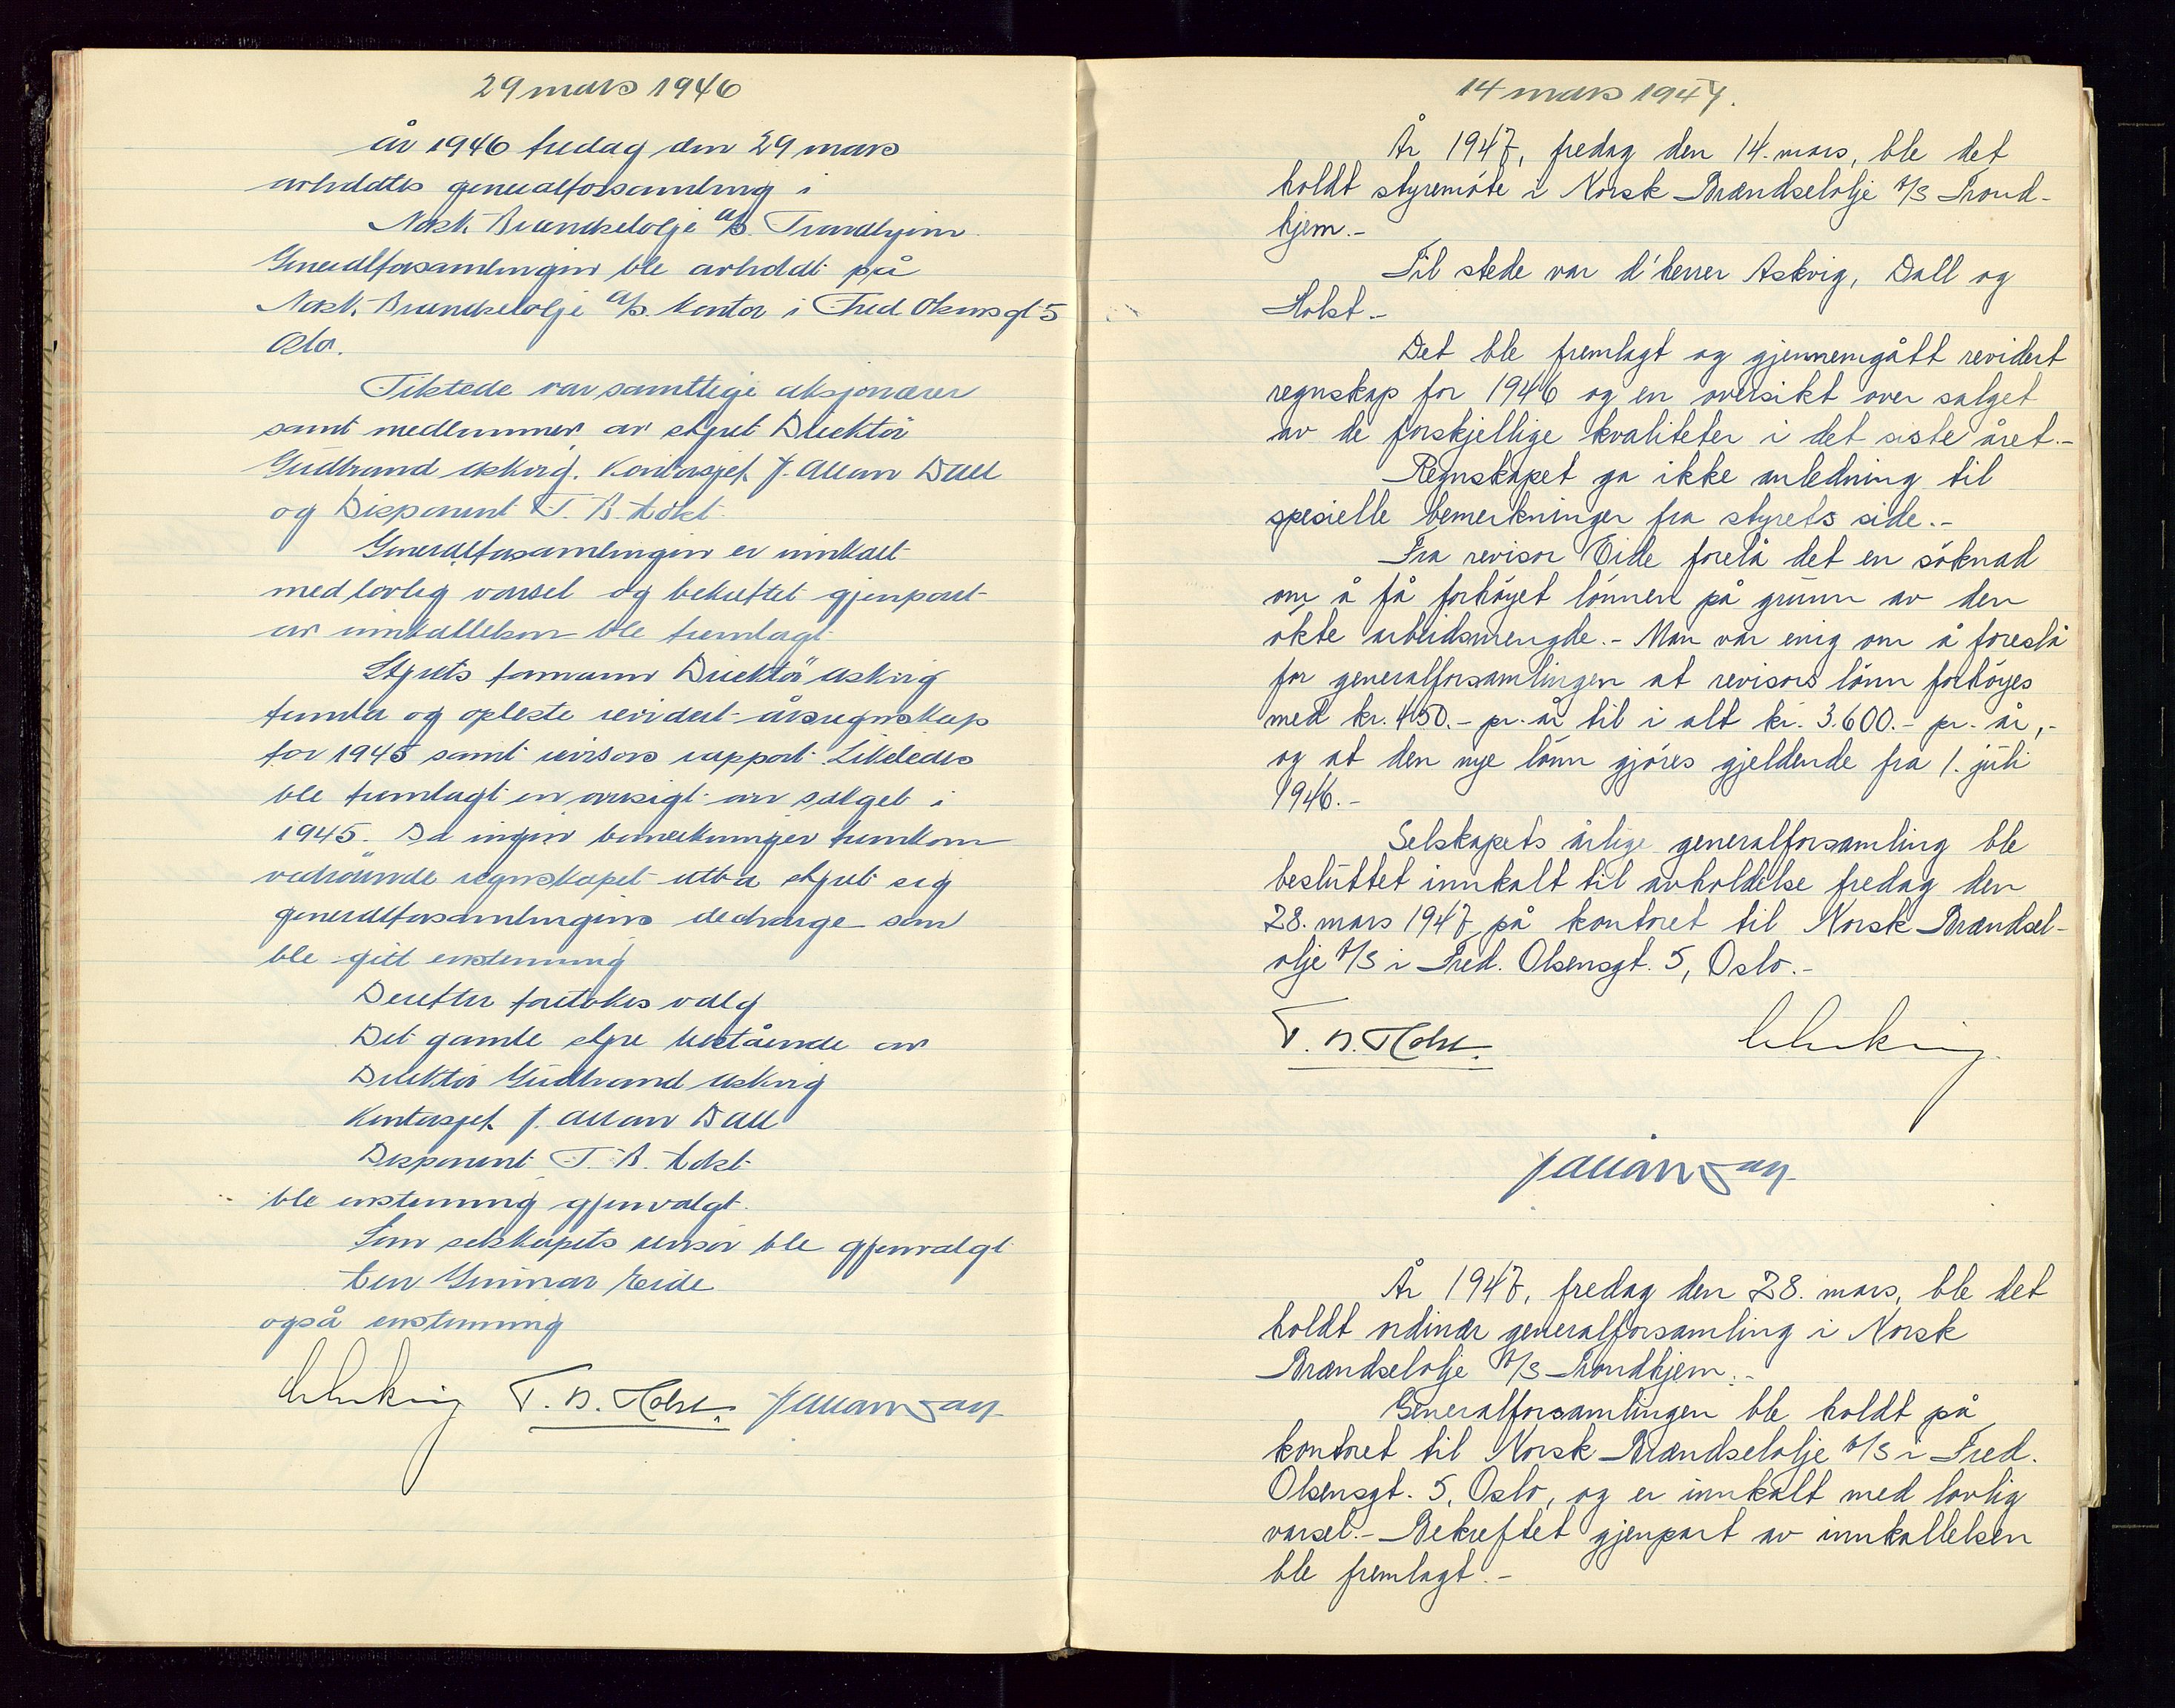 29 mars 1946
år 1946 fredag den 29 mars
avholdtes generalforsamling i
Norsk Brændselolje A/S. Trondhjem
Generalforsamlingen ble avholdt på
Norsk Brændselolje A/S. kontor i Fred Olsensgt 5
Oslo.
Tilstede var samtlige aksjonærer
samt medlemmer av styret Direktör
Gudbrand Askvig. Kontorsjef J. Allan Dall
og Disponent T. B. Holst
Generalforsamlingen er innkalt
med lovlig varsel og bekreftet gjenpart
av innkallelsen ble fremlagt
Styrets formann Direktör Askvig
fremla og opleste revidert årsregnskap
for 1945 samt revisors rapport Likeledes
ble fremlagt en oversigt over salget i
1945. Da ingen bemerkninger fremkom
vedrörende regnskapet utba styret sig
generalforsamlingens decharge som
ble gitt enstemmig
Derefter foretokes valg
Det gamle styre bestående av
Direktör Gudbrand Askvig
Kontorsjef J. Allan Dall
Disponent T. B. Holst
ble enstemmig gjenvalgt.
Som selskapets revisor ble gjenvalgt
herr Gunnar Eide
også enstemmig
T. B. Holst. J Allan Dall
14 mars 1947.
År 1947, fredag den 14. mars, ble det
holdt styremöte i Norsk Brændselolje A/S Trond-
hjem.-
Til stede var d'herrer Askvig, Dall og
Holst.-
Det ble fremlagt og gjennemgått revidert
regnskap for 1946 og en oversikt over salget
av de forskjellige kvaliteter i det siste året.-
Regnskapet ga ikke anledning til
spesielle bemerkninger fra styrets side.-
Fra revisor Eide forelå det en söknad
om å få forhöyet lönnen på grunn av den
ökte arbeidsmengde.- Man var enig om å foreslå
for generalforsamlingen at revisors lönn forhöyes
med kr. 450.- pr. år til i alt kr. 3.600.- pr. år,-
og at den nye lönn gjöres gjeldende fra 1. juli
1946.-
Selskapets årlige generalforsamling ble
besluttet innkalt til avholdelse fredag den
28. mars 1947 på kontoret til Norsk Brændsel-
olje A/S i Fred. Olsensgt. 5, Oslo.-
T. B. Holst.
J Allan Dall
År 1947, fredag den 28. mars, ble det
holdt ordinær generalforsamling i Norsk
Brændselolje A/S Trondhjem.-
Generalforsamlingen ble holdt på
kontoret til Norsk Brændselolje A/S i Fred.
Olsensgt. 5, Oslo, og er innkalt med lovlig
varsel.- Bekreftet gjenpart av innkallelsen
ble fremlagt.-